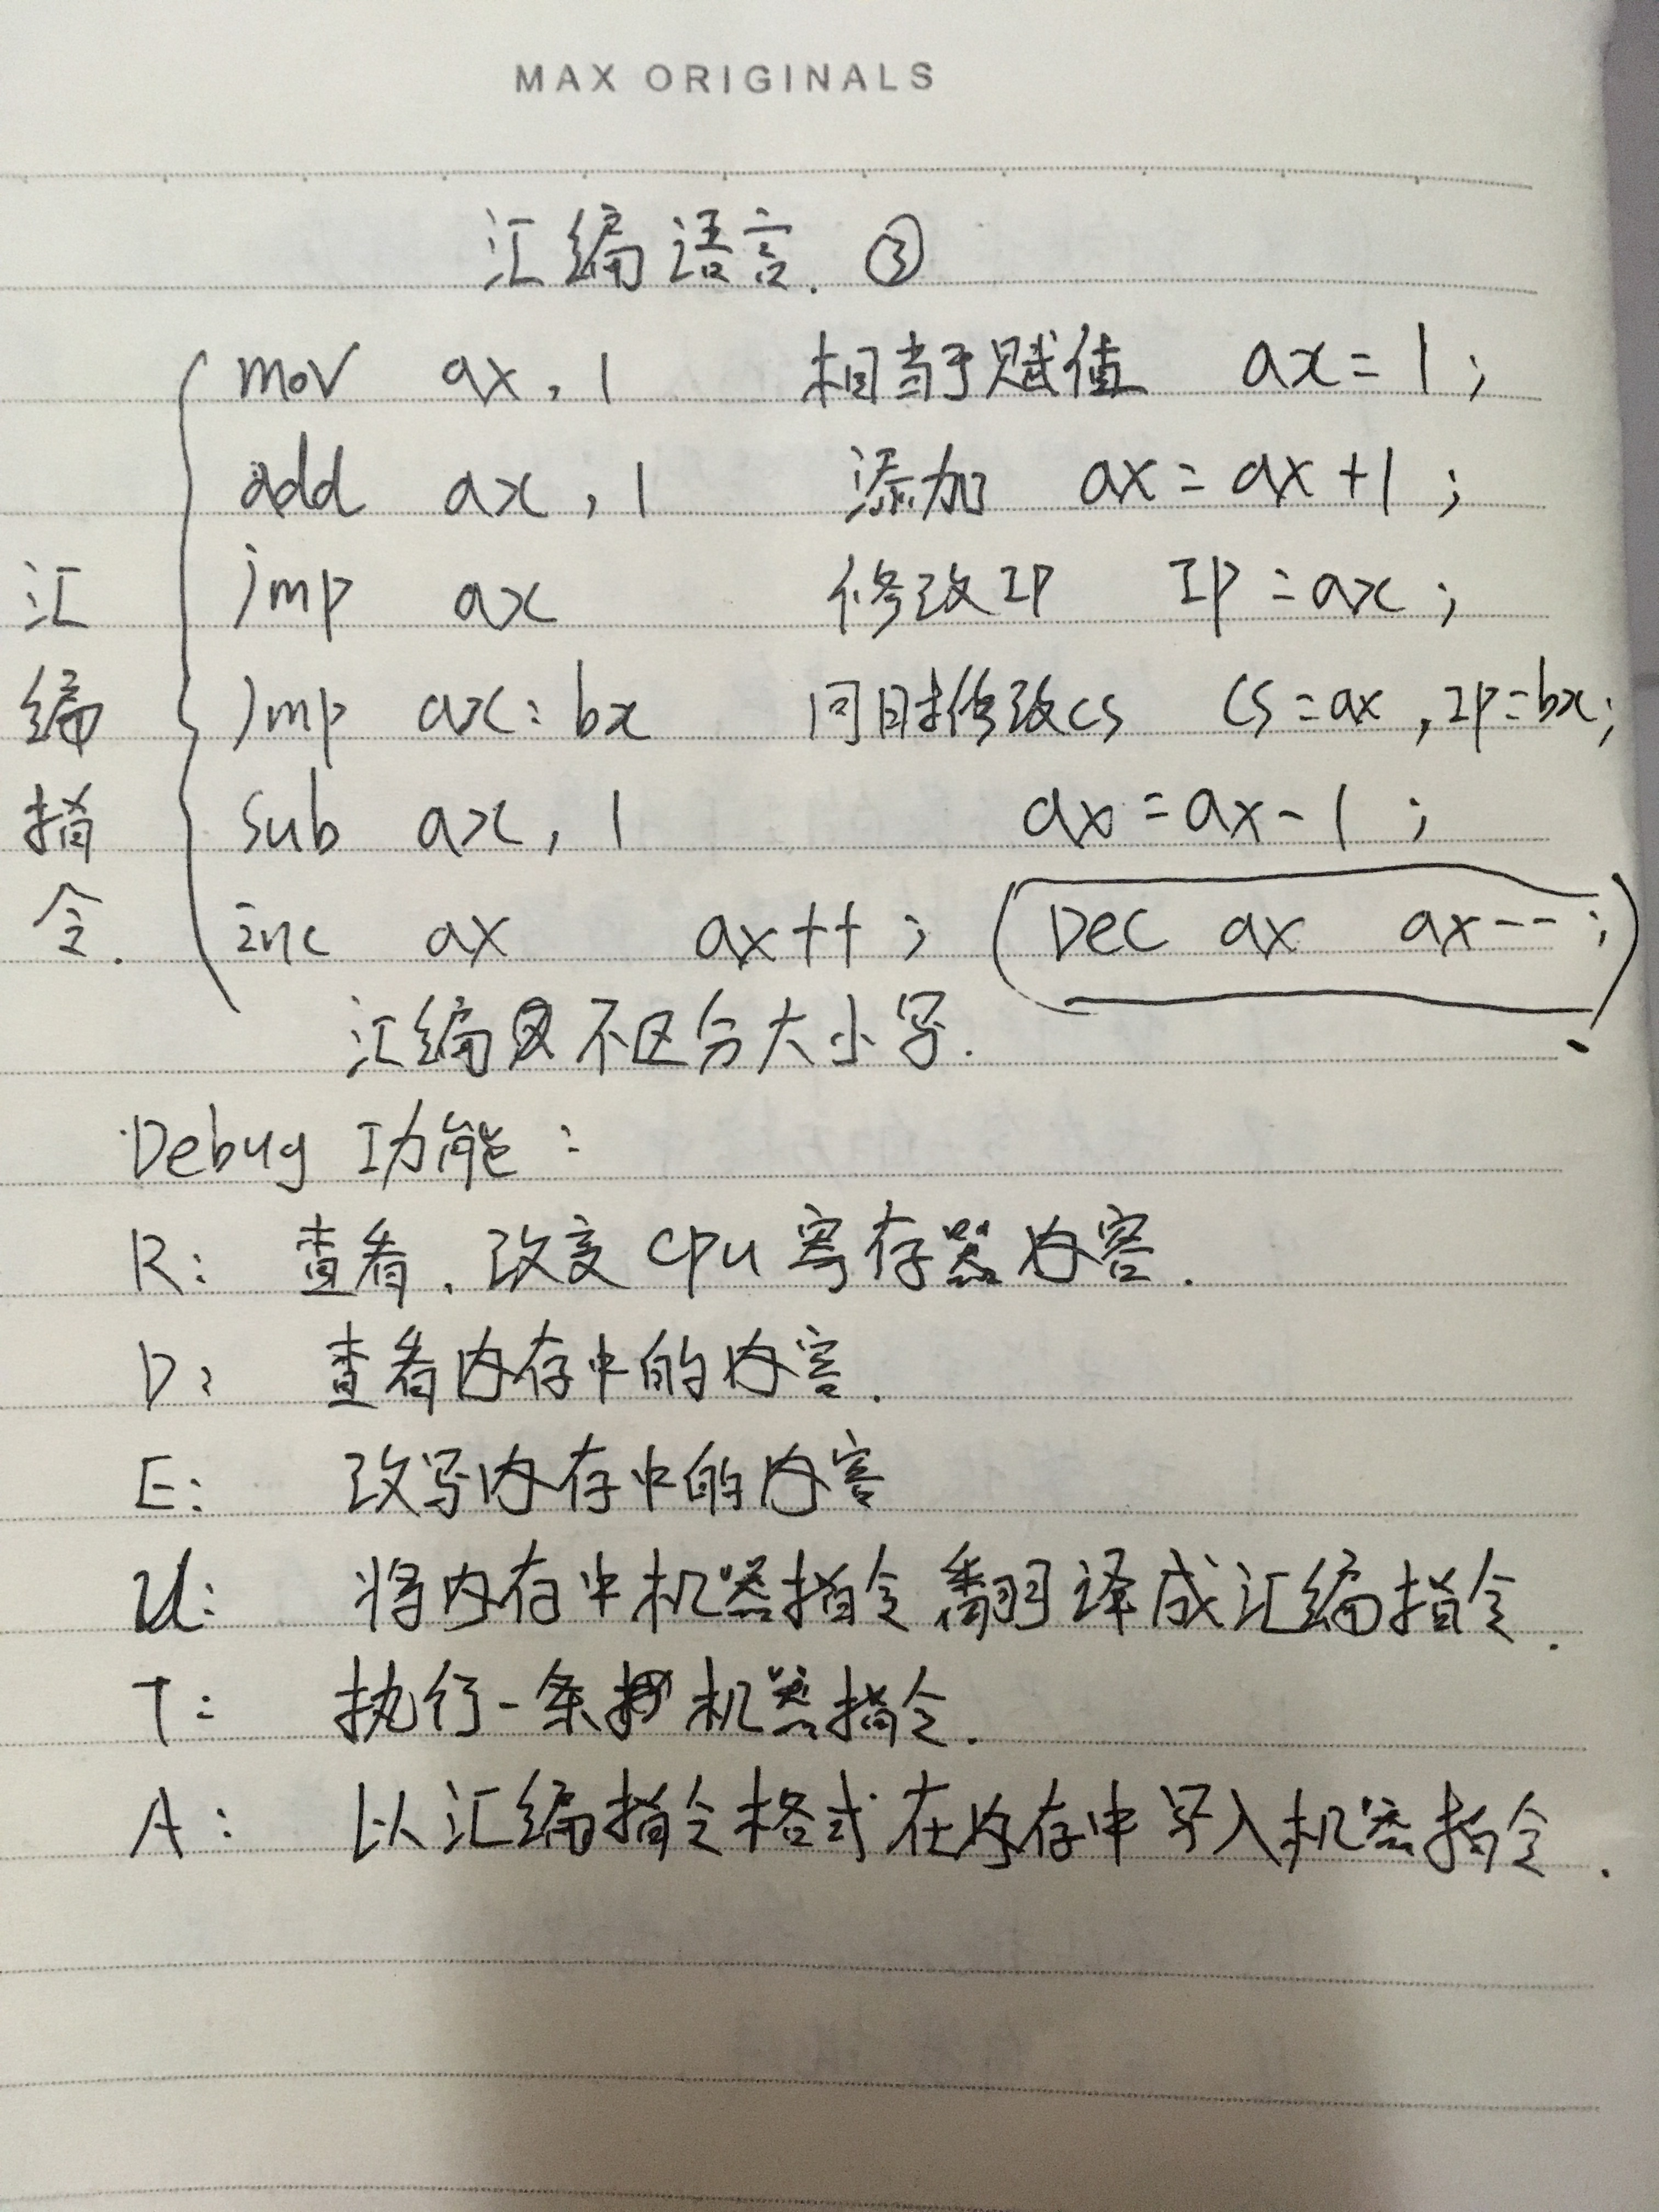 MAX ORIGINALS
汇编语言. ③
汇编指令.
mov ax, 1 相当于赋值 ax = 1;
add ax, 1 添加 ax = ax + 1;
jmp ax 修改IP IP = ax;
jmp ax:bx 同时修改CS CS = ax, IP = bx;
sub ax, 1 ax = ax - 1;
inc ax ax++; (Dec ax ax--;)
汇编不区分大小写.
Debug 功能:
R: 查看、改变 cpu 寄存器内容.
D: 查看内存中的内容.
E: 改写内存中的内容
U: 将内存中机器指令翻译成汇编指令.
T: 执行一条机器指令.
A: 以汇编指令格式在内存中写入机器指令.